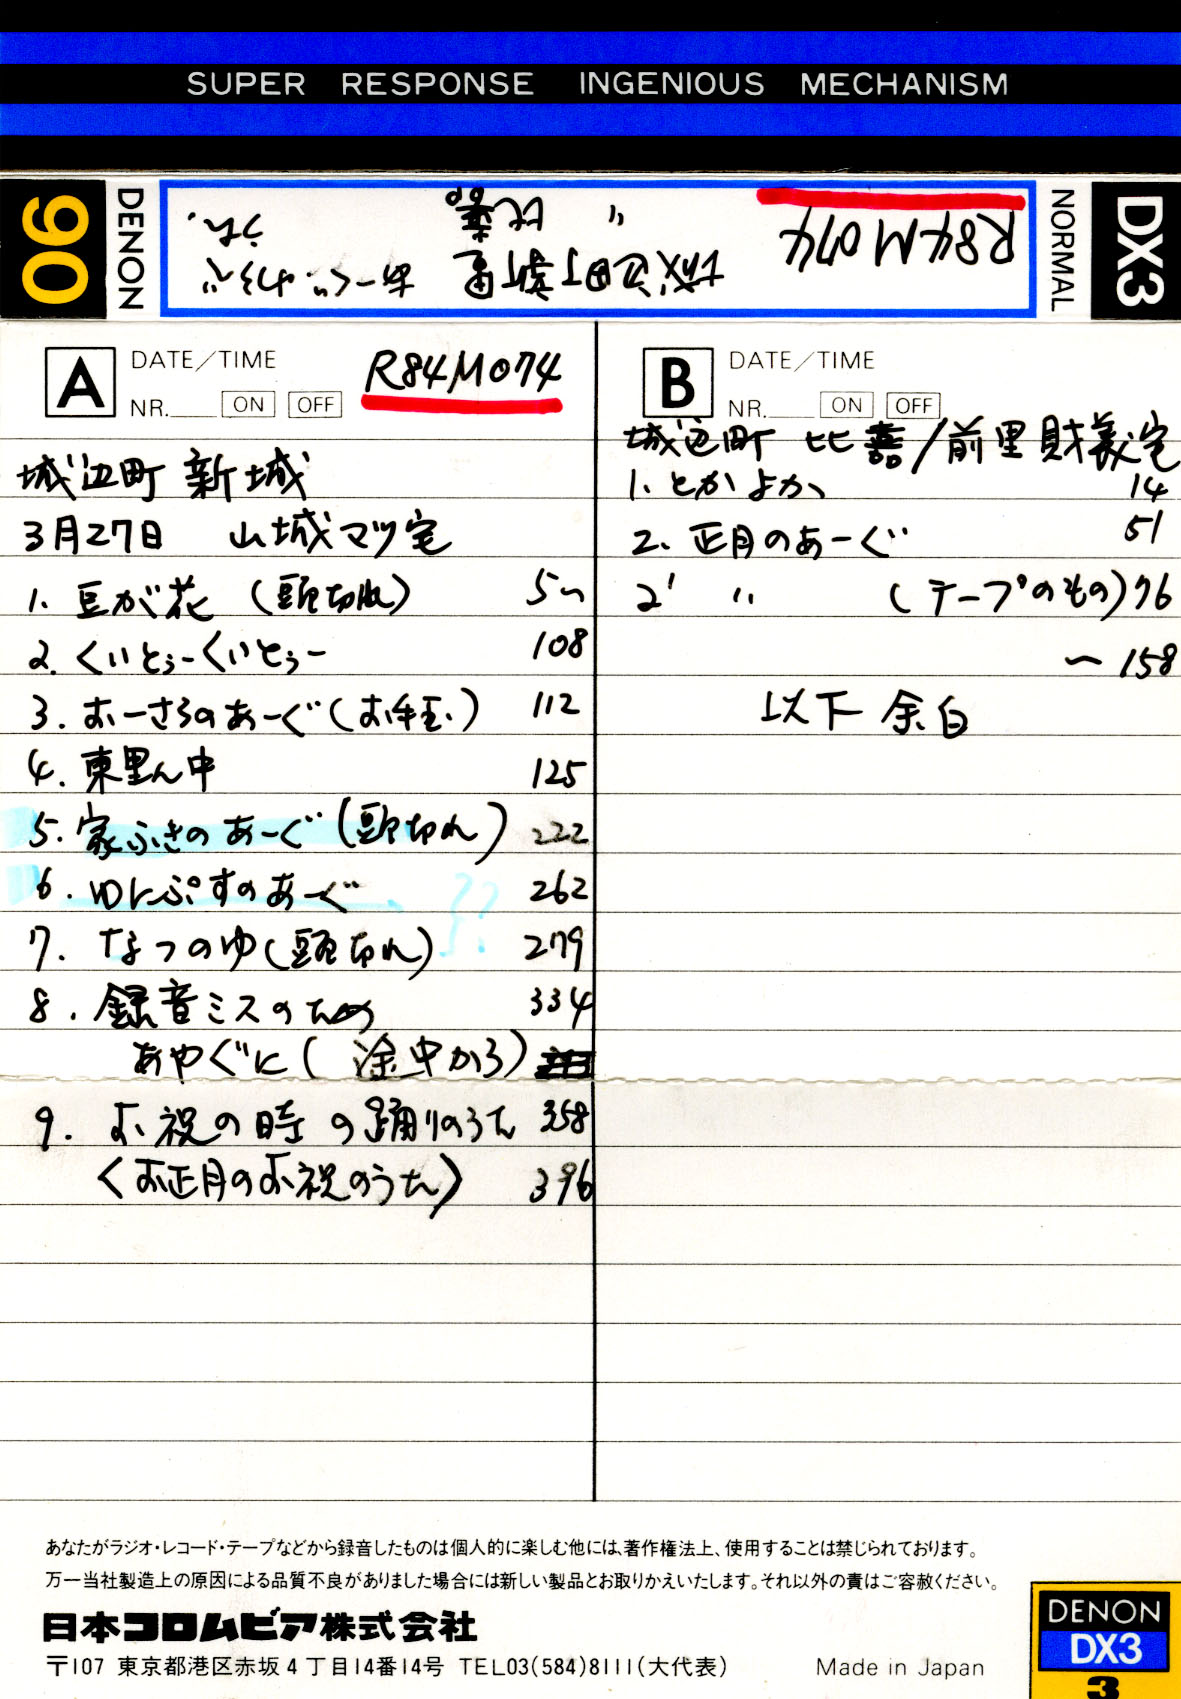 SUPER RESPONSE INGENIOUS MECHANISM
DX3
NORMAL
R84M074
城辺町新里 あーぐ、やらべ
〃 比嘉 うた
DENON
90
A DATE/TIME
NR. ON OFF
R84M074
城辺町 新城
3月27日 山城マツ宅
1. 豆が花 (頭切れ) 5〜
2. くいとぅーくいとぅー 108
3. おーさらのあーぐ(お手玉) 112
4. 東里ん中 125
5. 家ふきのあーぐ(頭切れ) 222
6. ゆにぷすのあーぐ ?? 262
7. なつのゆ(頭切れ) 279
8. 録音ミスのため 334
あやぐに(途中から)
9. お祝の時の踊りのうた 358
〈お正月のお祝のうた〉 396
B DATE/TIME
NR. ON OFF
城辺町 比嘉/前里財義宅
1. とかよか 14
2. 正月のあーぐ 51
2' 〃 (テープのもの) 76
〜158
以下余白
あなたがラジオ・レコード・テープなどから録音したものは個人的に楽しむ他には、著作権法上、使用することは禁じられております。
万一当社製造上の原因による品質不良がありました場合には新しい製品とお取りかえいたします。それ以外の責はご容赦ください。
日本コロムビア株式会社
〒107 東京都港区赤坂4丁目14番14号 TEL03(584)8111(大代表)
Made in Japan
DENON
DX3
3